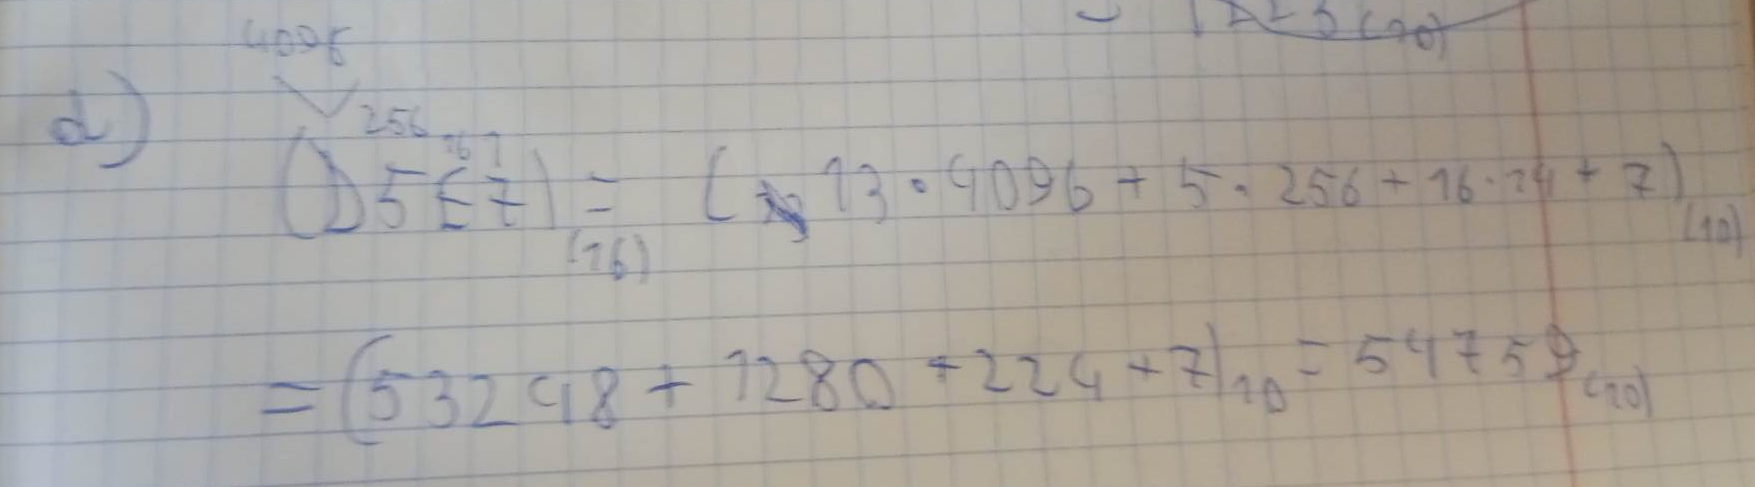 1223(10)
4096
d) 256 16 1
(D5E7)(16) = (13·4096 + 5·256 + 16·14 + 7)(10)
= (53248 + 1280 + 224 + 7)10 = 54759(10)